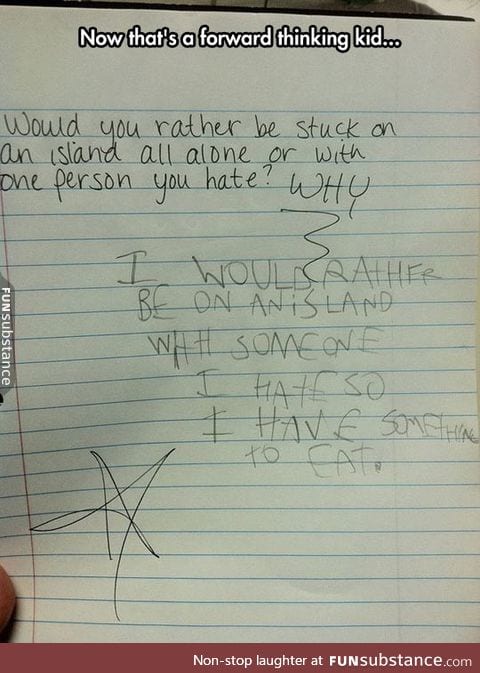 Now that's a forward thinking kid...
Would you rather be stuck on
an island all alone or with
one person you hate? WHY
I WOULD RATHER
BE ON AN ISLAND
WITH SOMEONE
I HATE SO
I HAVE SOMETHING
TO EAT.
FUNsubstance
Non-stop laughter at FUNsubstance.com